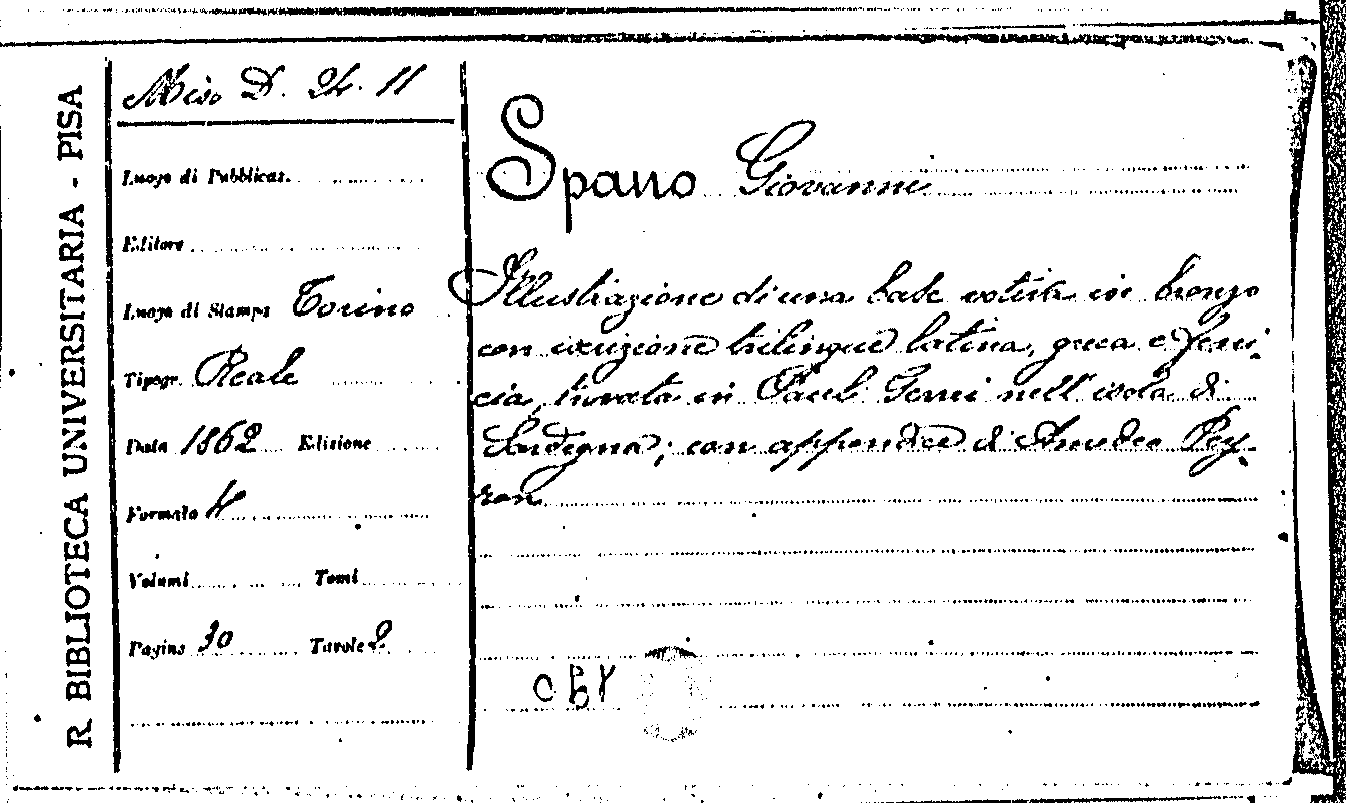 R. BIBLIOTECA UNIVERSITARIA - PISA
Misc. D. 24. 11
Luogo di Pubblicaz.
Editore
Luogo di Stampa Torino
Tipogr. Reale
Data 1862 Edizione
Formato 4
Volumi Tomi
Pagine 30 Tavole 2
Spano Giovanni
Illustrazione di una base votiva in bronzo
con iscrizione trilingue latina, greca e feni-
cia, trovata in Pauli Gerrei nell'isola di
Sardegna; con appendice di Amedeo Pey-
ron